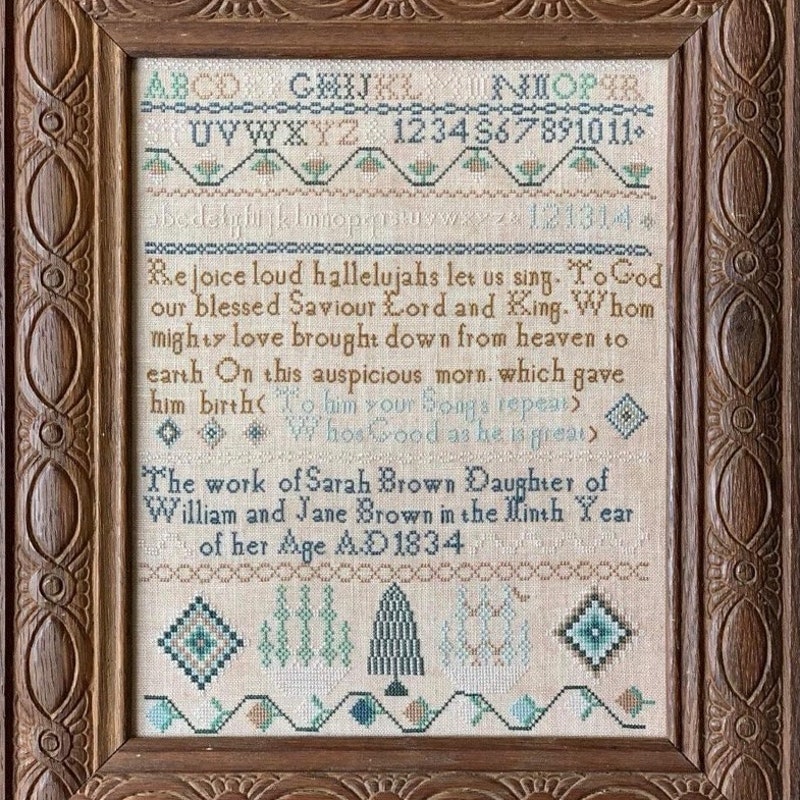 ABCD GHIJKL NOPQR
UVWXYZ 1234567891011
abcdefghijklmnopqrstuvwxyz& 121314
Rejoice loud hallelujahs let us sing. To God
our blessed Saviour Lord and King. Whom
mighty love brought down from heaven to
earth On this auspicious morn. which gave
him birth( To him your Songs repeat)
Whos Good as he is great)
The work of Sarah Brown Daughter of
William and Jane Brown in the Ninth Year
of her Age A.D 1834